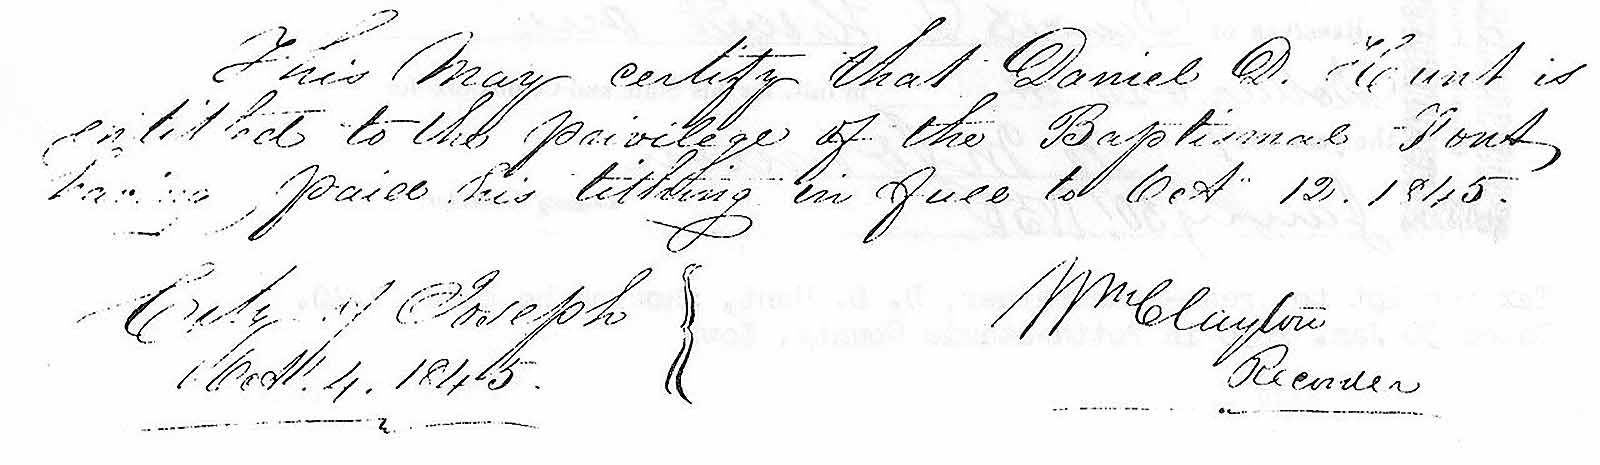 This May certify that Daniel D. Hunt is
entitled to the privilege of the Baptismal Font
having paid his tithing in full to Oct 12. 1845.
City of Joseph
Oct. 4. 1845.
Wm Clayton
Recorder